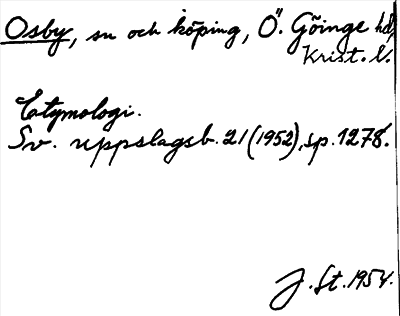 Osby, sn och köping, Ö. Göinge hd,
Krist. l.
Etymologi.
Sv. uppslagsb. 21 (1952), sp. 1278.
J. St. 1954.